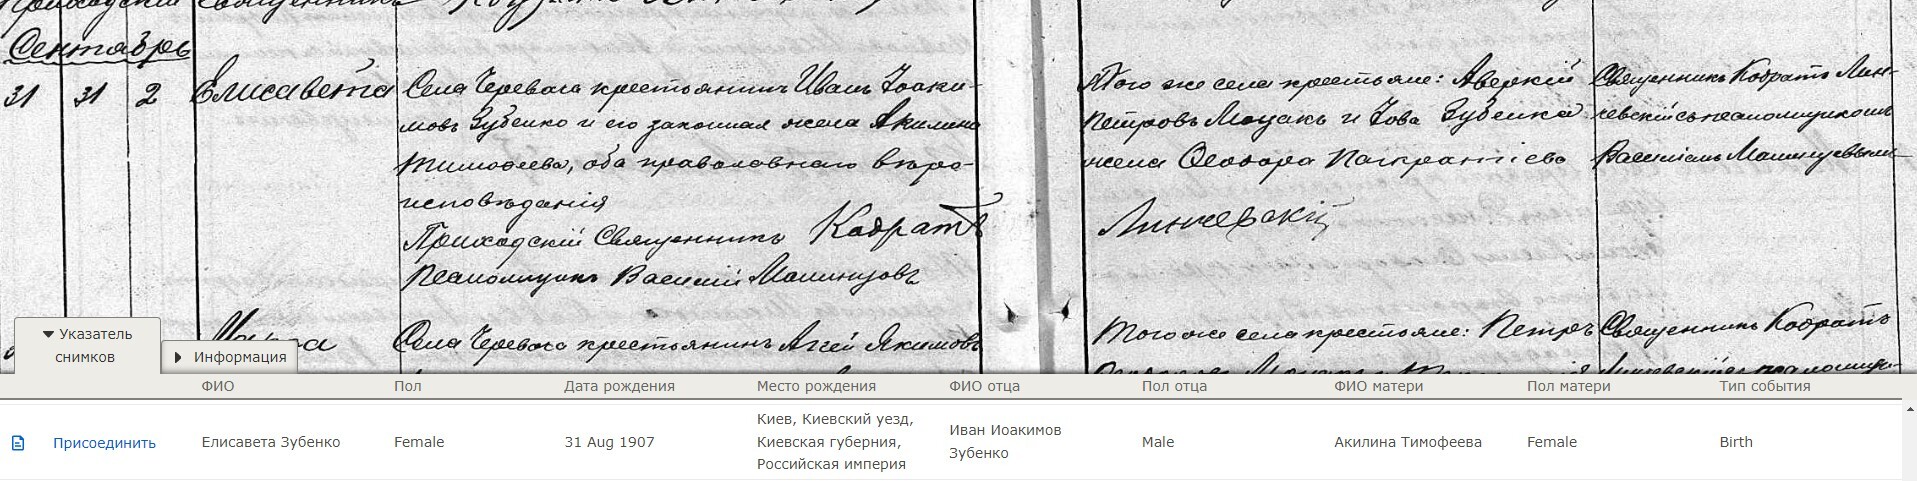 Приходскій Священникъ
Сентябрь
31 31 2 Елисавета
Села Черевача крестьянинъ Иванъ Іоаки-
мовъ Зубенко и его законная жена Акилина
Тимофеева, оба православнаго вѣро-
исповѣданія
Приходскій Священникъ Кодратъ
Псаломщикъ Василій
Того же села крестьяне: Аверкій
Петровъ и Іова Зубенка
жена Ѳеодора Панкратіева
Линчевскій
Священникъ Кодратъ Лин-
чевскій съ псаломщикомъ
Василіемъ
Села Черевача крестьянинъ Агей Якимовъ
Того же села крестьяне: Петръ
Священникъ Кодратъ
Указатель
снимков
Информация
ФИО Пол Дата рождения Место рождения ФИО отца Пол отца ФИО матери Пол матери Тип события
Присоединить
Елисавета Зубенко
Female
31 Aug 1907
Киев, Киевский уезд,
Киевская губерния,
Российская империя
Иван Иоакимов
Зубенко
Male
Акилина Тимофеева
Female
Birth